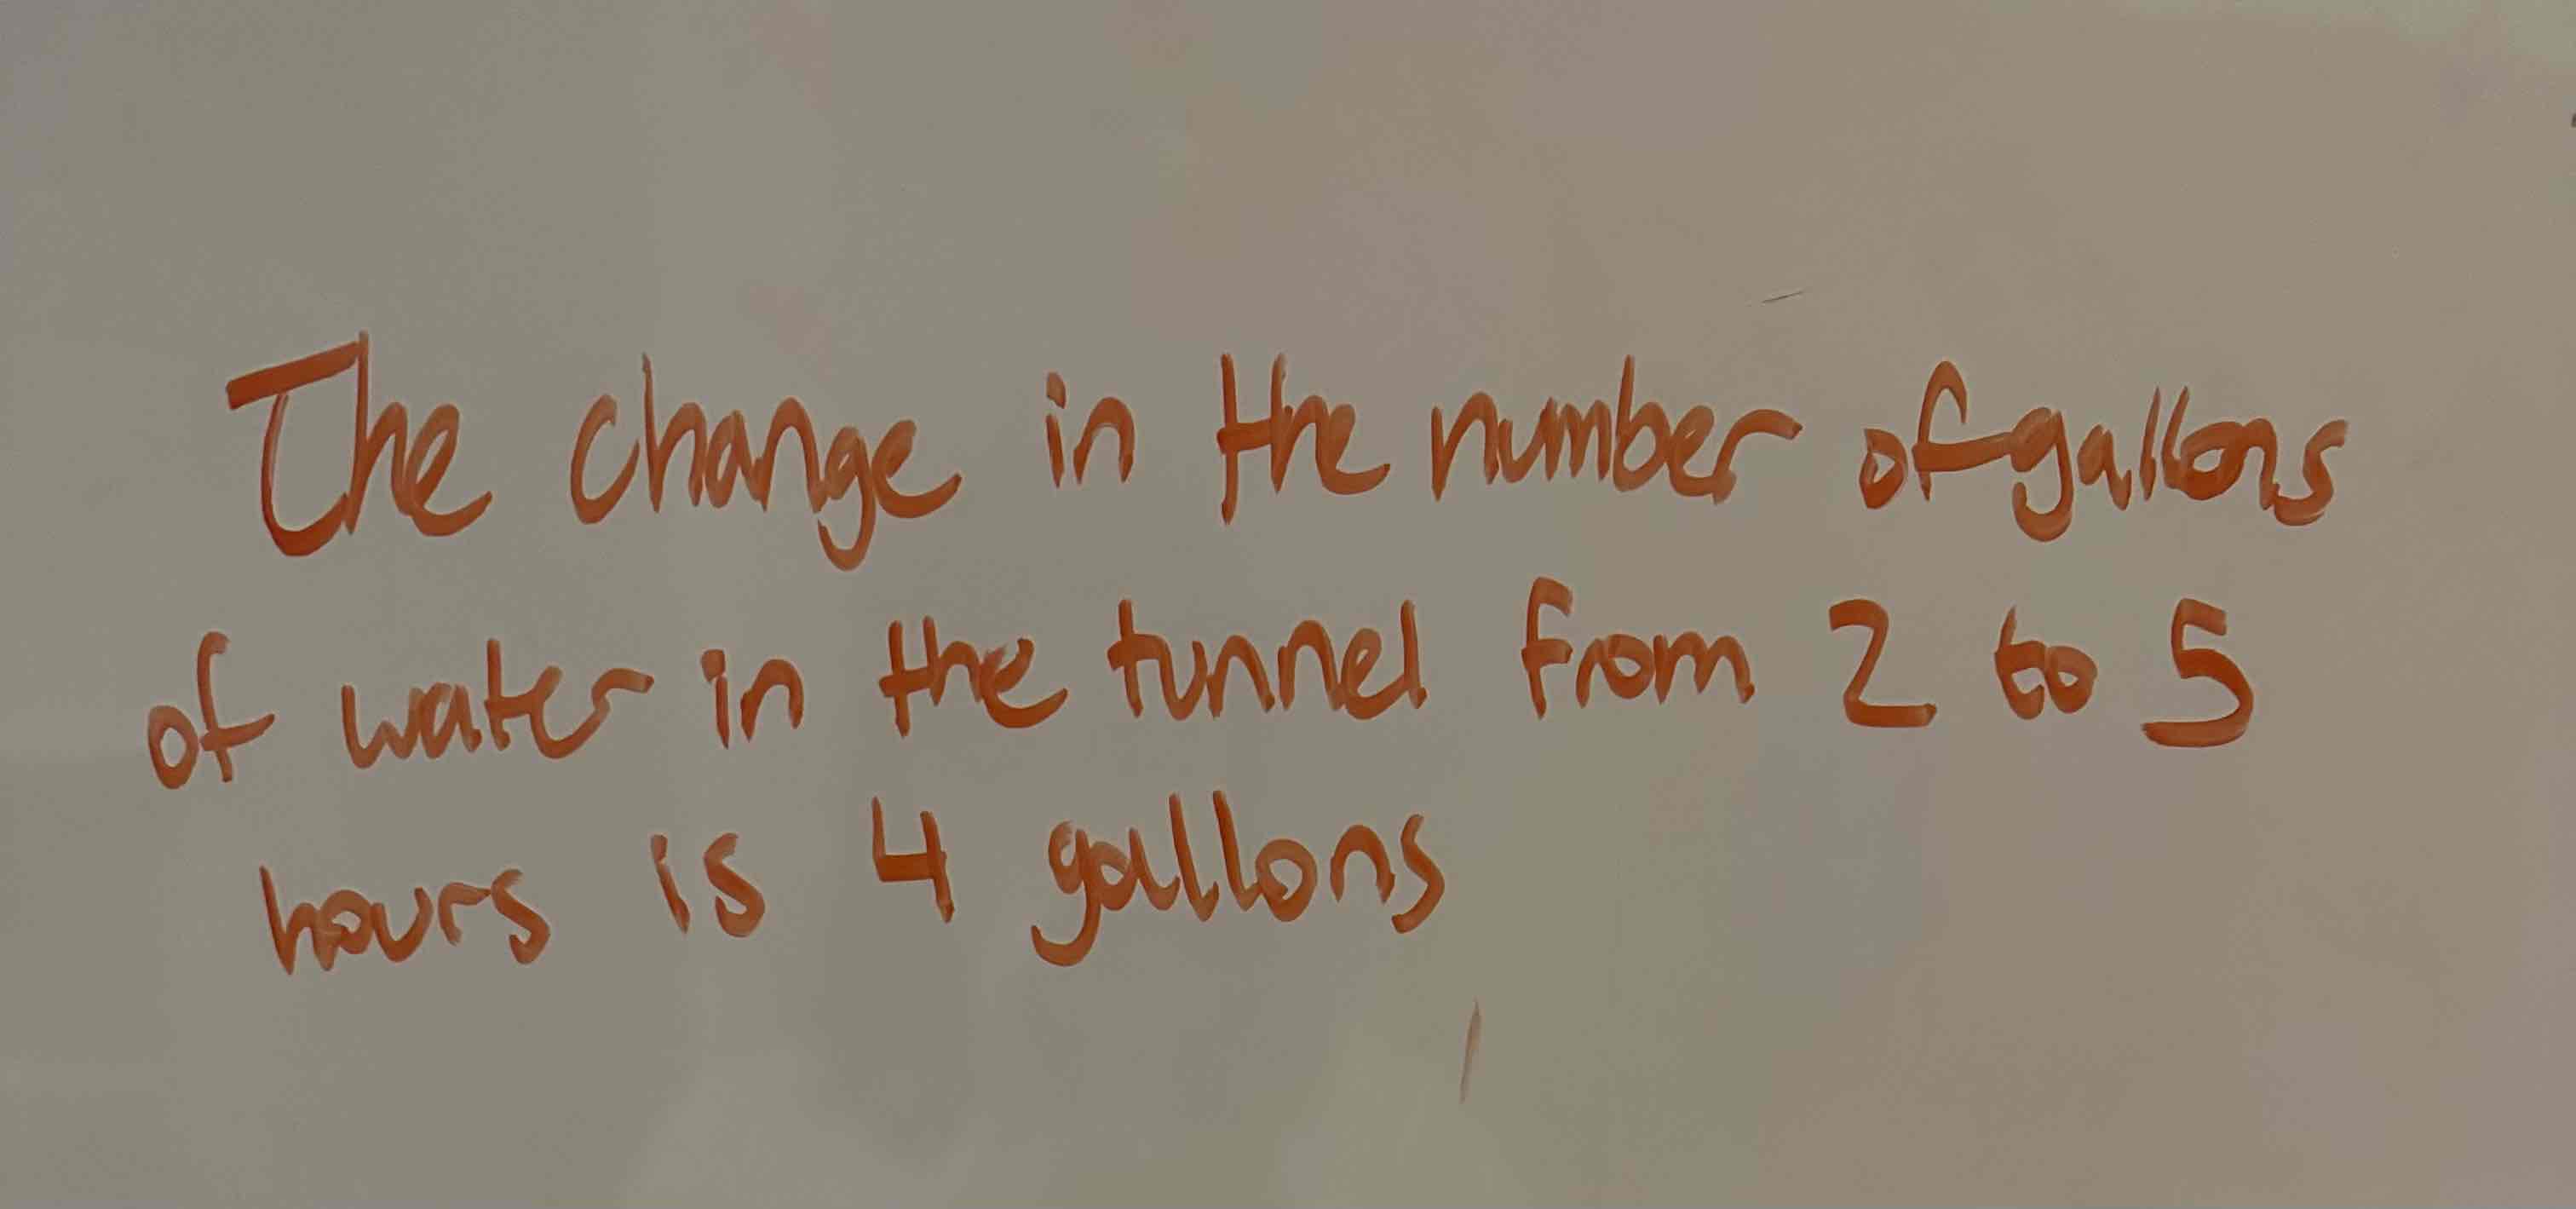 The change in the number of gallons
of water in the tunnel from 2 to 5
hours is 4 gallons